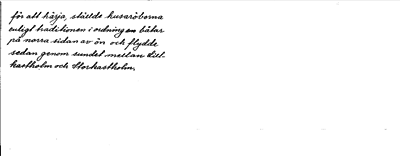 för att härja, ställde husaröborna
enligt traditionen i ordning en båtar
på norra sidan av ön och flydde
sedan genom sundet mellan Lill-
kastholm och Storkastholm.